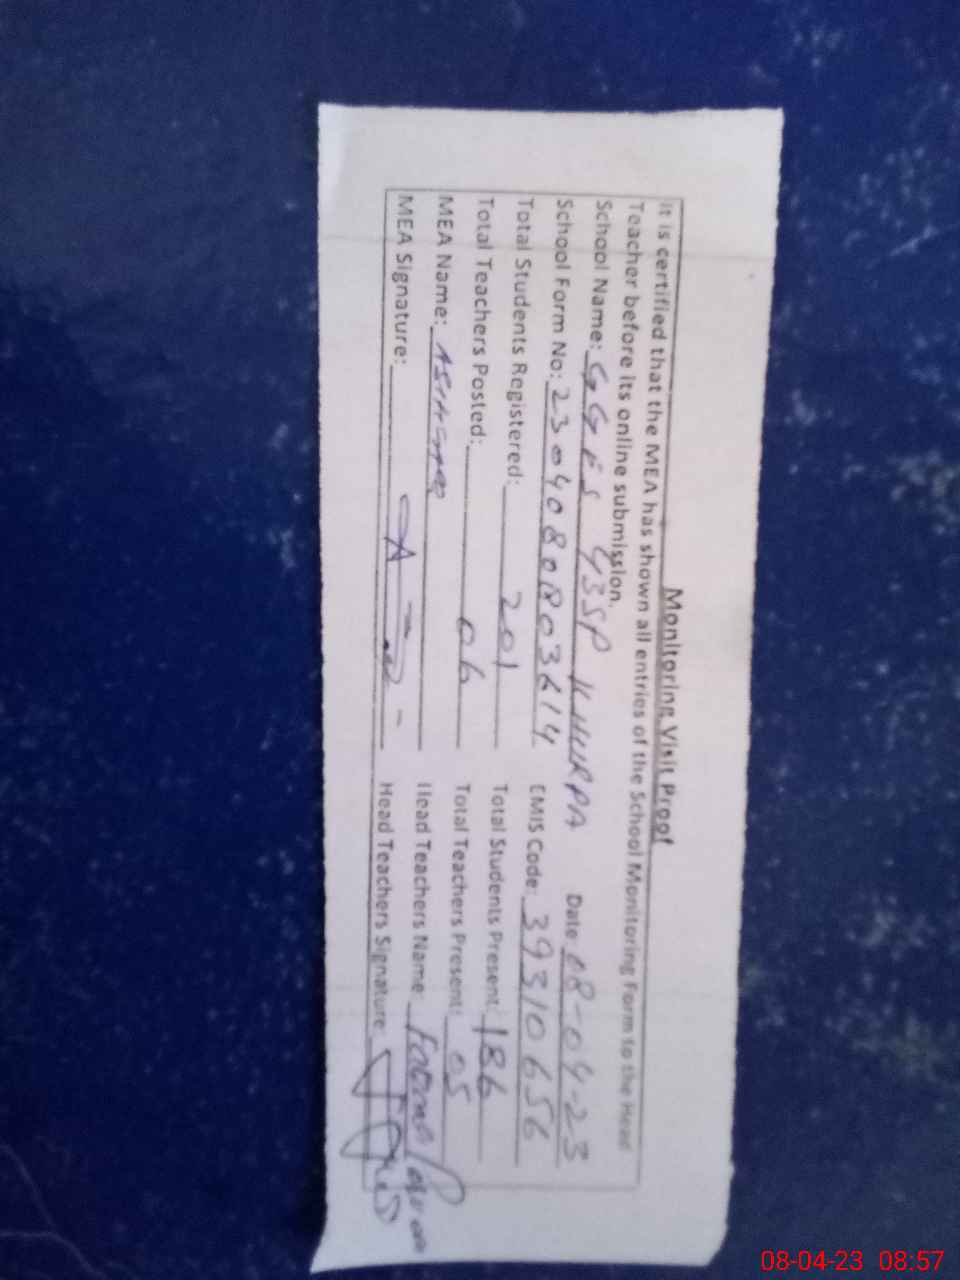 Monitoring Visit Proof
It is certified that the MEA has shown all entries of the School Monitoring Form to the Head
Teacher before its online submission.
School Name: GGES 43SP KHURPA Date 08-04-23
School Form No: 2304080803614 EMIS Code: 39310656
Total Students Registered: 201 Total Students Present: 186
Total Teachers Posted: 06 Total Teachers Present: 05
MEA Name: Head Teachers Name:
MEA Signature: Head Teachers Signature
08-04-23 08:57